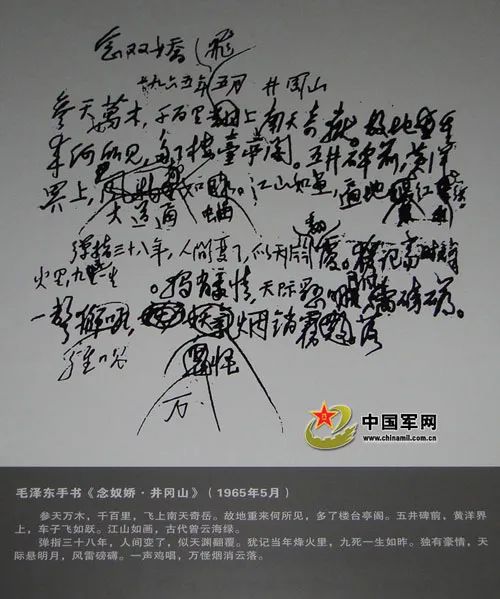 念
九六五年五月 井岡山
参天萬木，千百里 上南天奇岳。故地重
来何所见，多了楼臺亭阁。五井碑前，黄洋
界上， 江山如画，遍地 红
大道通
弹指三十八年，人間变了，似天渊翻覆。犹记当时烽
火里，九死一生
。独有豪情，天际悬明 磅礴。
一声 烟消 落
怪
万
中国军网
www.chinamil.com.cn
毛泽东手书《念奴娇·井冈山》（1965年5月）
参天万木，千百里，飞上南天奇岳。故地重来何所见，多了楼台亭阁。五井碑前，黄洋界
上，车子飞如跃。江山如画，古代曾云海绿。
弹指三十八年，人间变了，似天渊翻覆。犹记当年烽火里，九死一生如昨。独有豪情，天
际悬明月，风雷磅礴。一声鸡唱，万怪烟消云落。